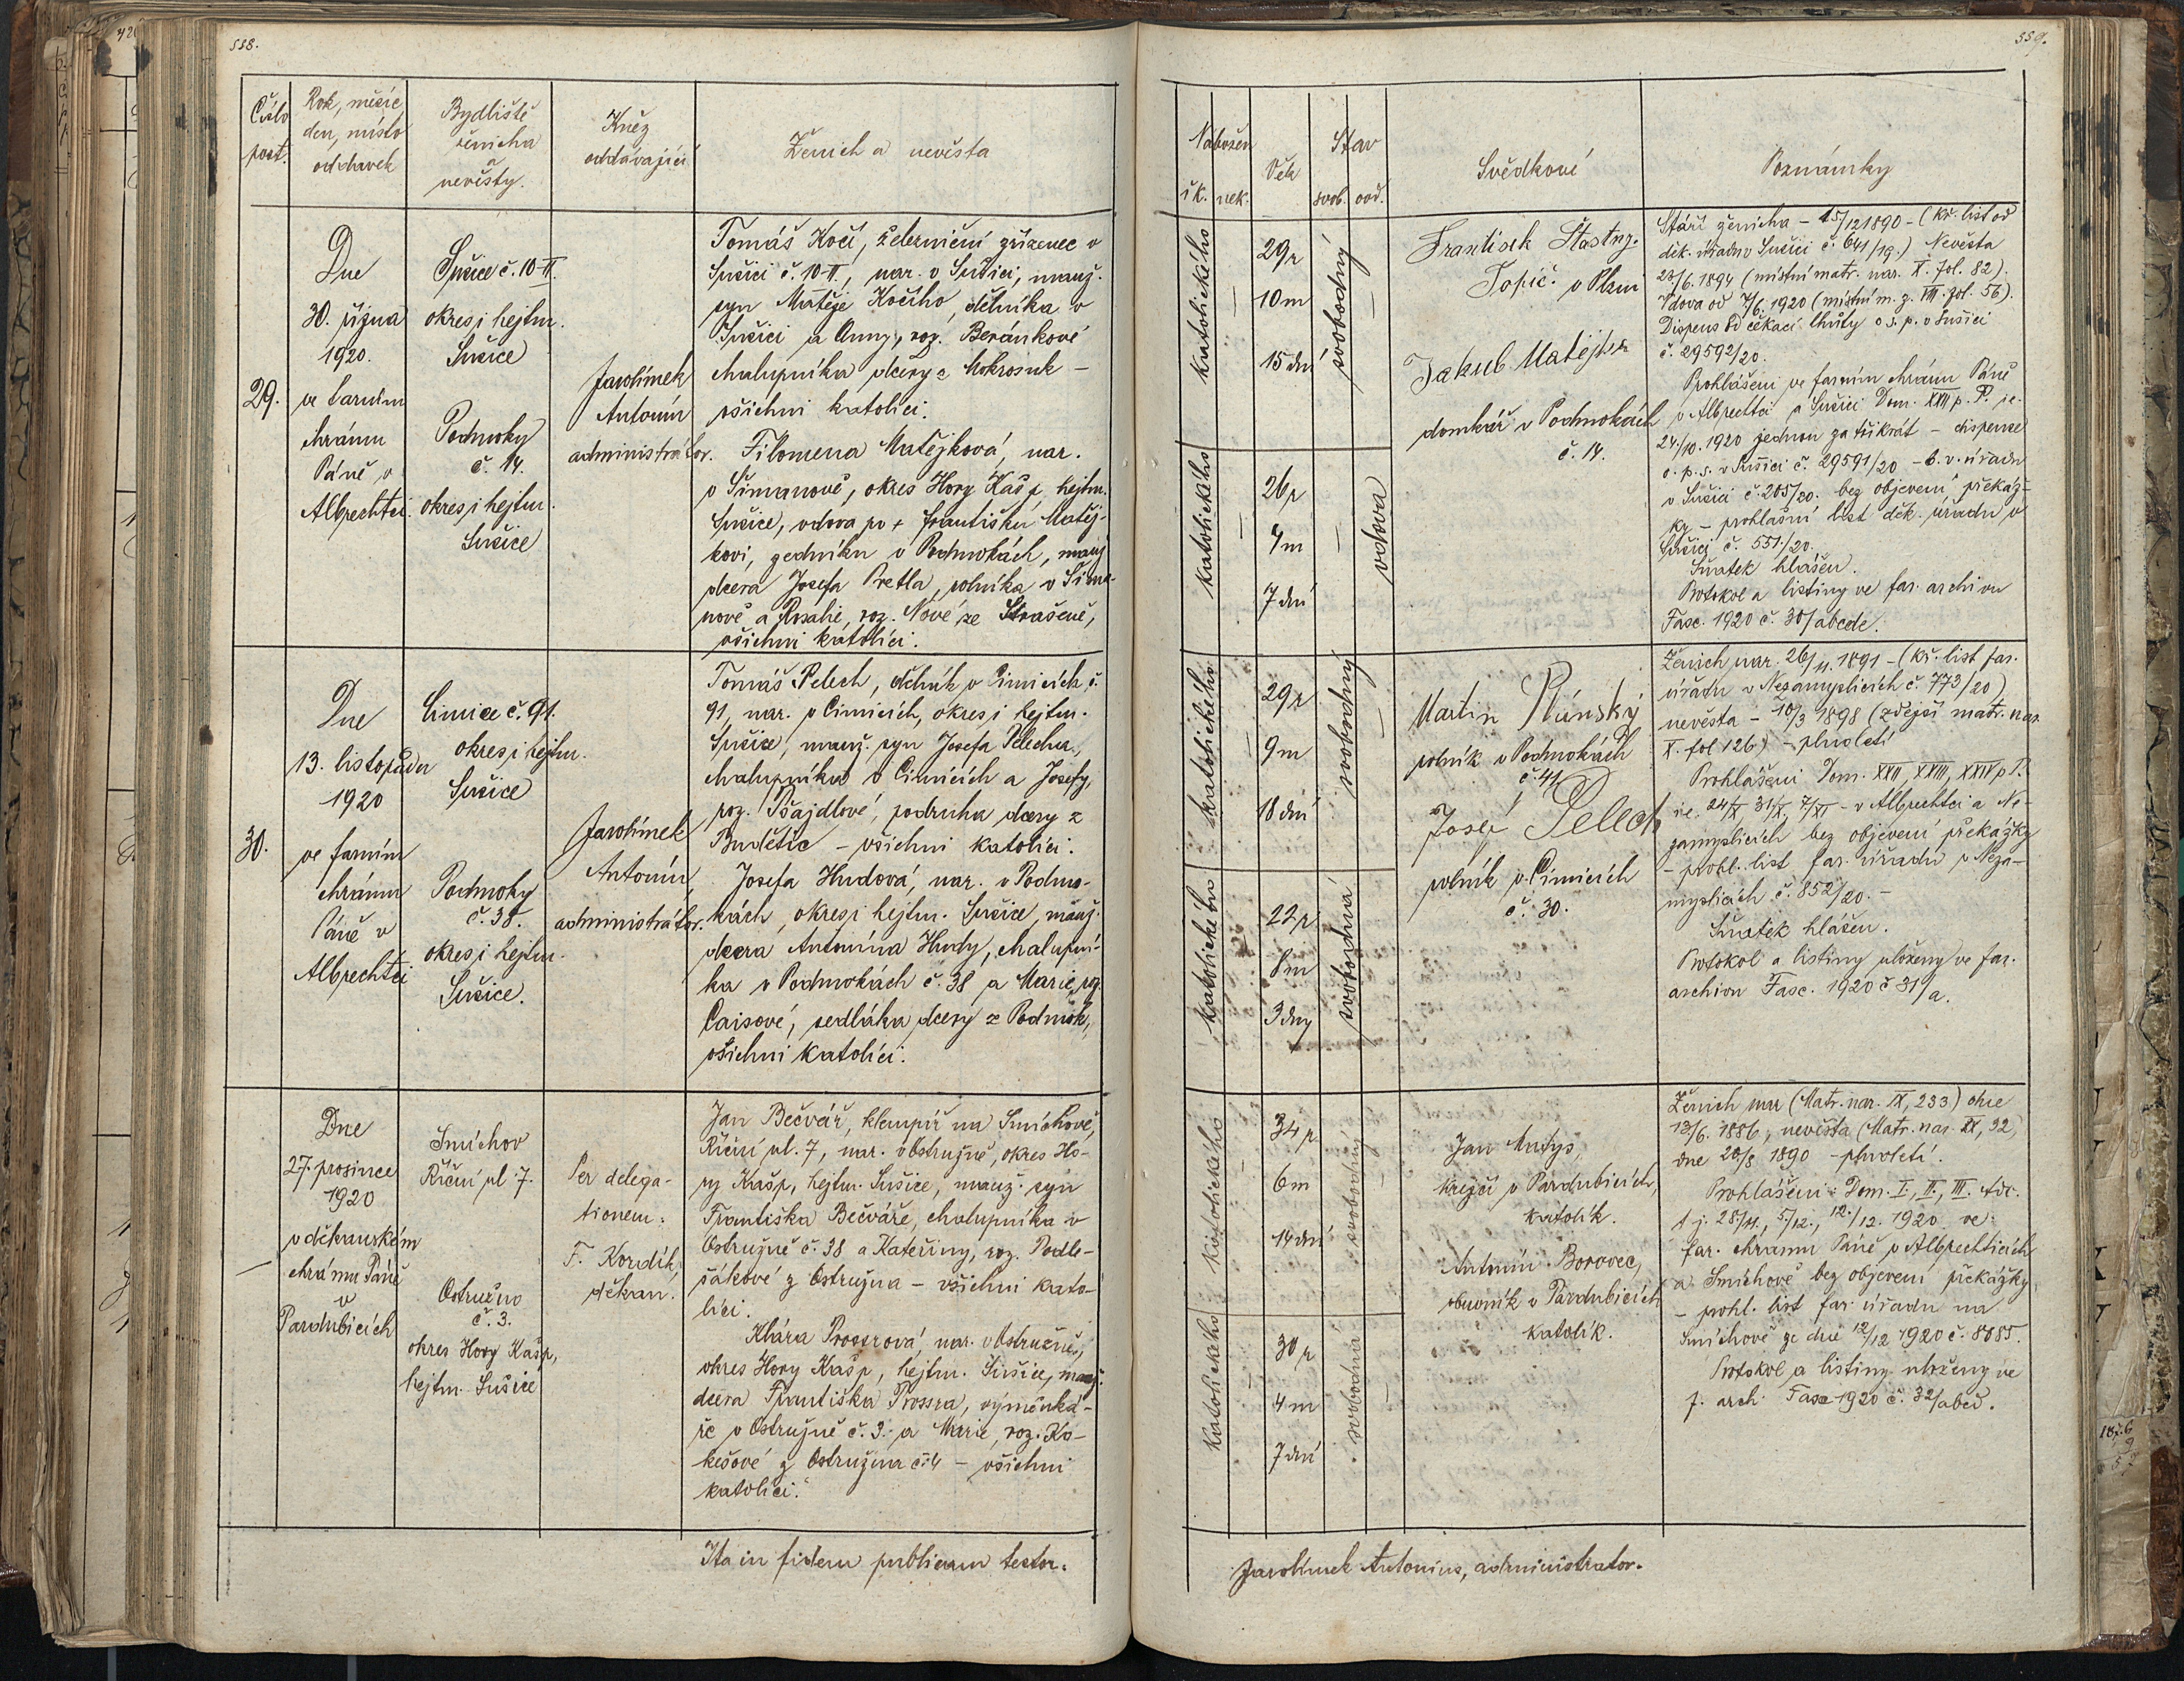 338.
Číslo
post.
Rok, měsíc
den, místo
oddavek
Bydliště
ženicha
a
nevěsty.
Kněz
oddávající
Ženich a nevěsta
29.
Dne
30. října
1920.
ve farním
chrámu
Páně v
Albrechtci.
Sušice č. 10-II.
okres i hejtm.
Sušice
Podmoky
č. 14.
okres i hejtm.
Sušice
Jarolímek
Antonín
administrátor.
Tomáš Kočí, železniční zřízenec v
Sušici č. 10-II, nar. v Sušici, manž.
syn Matěje Kočího, dělníka v
Sušici a Anny, roz. Beránkové
chalupníka dcery z Mokrosuk –
všichni katolíci.
Filomena Matějková, nar.
v Šimanově, okres Hory Kašp, hejtm.
Sušice, vdova po + Františku Matěj-
kovi, zedníku v Podmokách, manž
dcera Josefa Pretla, rolníka v Šima-
nově a Rosalie, roz. Nové ze Strašeně,
všichni katolíci.
30.
Dne
13. listopadu
1920
ve farním
chrámu
Páně v
Albrechtci
Čimice č. 91.
okres i hejtm.
Sušice
Podmoky
č. 38.
okres i hejtm.
Sušice.
Jarolímek
Antonín,
administrátor.
Tomáš Pelech, dělník v Čimicích č.
91, nar. v Čimicích, okres i hejtm.
Sušice, manž. syn Josefa Pelecha,
chalupníka v Čimicích a Josefy,
roz. Pšajdlové, podruha dcery z
Budětic – všichni katolíci.
Josefa Hudová, nar. v Podmo-
kách, okres i hejtm. Sušice, manž.
dcera Antonína Hudy, chalupní-
ka v Podmokách č. 38 a Marie, roz.
Caisové, sedláka dcery z Podmok,
všichni katolíci.
—
Dne
27. prosince
1920
v děkanském
chrámu Páně
v
Pardubicích
Smíchov
Říční ul. 7.
Ostružno
č. 3.
okres Hory Kašp,
hejtm. Sušice
Per delega-
tionem:
F. Kordík,
děkan.
Jan Bečvář, klempíř na Smíchově,
Říční ul. 7, nar. v Ostružně, okres Ho-
ry Kašp, hejtm. Sušice, manž. syn
Františka Bečváře, chalupníka v
Ostružně č. 38 a Kateřiny, roz. Podle-
šákové z Ostružna – všichni kato-
líci.
Klára Prosserová, nar. v Ostružně,
okres Hory Kašp, hejtm. Sušice, manž.
dcera Františka Prossra, výměnká-
ře v Ostružně č. 3. a Marie, roz. Ko-
kešové z Ostružna č. 4 – všichni
katolíci.
Ita in fidem publicam testor.
339.
Nábožen
ř.k.
nek.
Věk
Stav
svob.
ovd.
Svědkové
Poznámky
katolického
–
29 r
10 m
15 dní
svobodný
–
katolického
–
26 r
4 m
7 dní
–
vdova
František Šťastný.
Topič v Plzni
Jakub Matějka
domkář v Podmokách
č. 14.
Stáří ženicha – 15/12 1890 – (kř. list od
děk. úřadu v Sušici č. 641/19.) Nevěsta
23/6. 1894 (místní matr. nar. X. fol. 82).
Vdova od 7/6. 1920 (místní m. z. VIII. fol. 56).
Dispens od čekací lhůty o s. p. v Sušici
č. 29592/20.
Prohlášeni ve farním chrámu Páně
v Albrechtci a Sušici Dom. XXII p. P. ie.
24./10. 1920 jednou za třikrát – dispense
o. p. s. v Sušici č. 29591/20 – b. v. úřadu
v Sušici č. 205/20. bez objevení překáž-
ky – prohlašní list děk. úřadu v
Sušici č. 551/20.
Sňatek hlášen.
Protokol a listiny ve far. archivu
Fasc. 1920 č. 30/abcde.
katolického
29 r
9 m
18 dní
svobodný
–
katolického
22 r
8 m
3 dny
svobodná
Martin
rolník v Podmokách
č. 41
Josef Pelech
rolník v Čimicích
č. 30.
Ženich nar. 26/11. 1891 – (kř. list far.
úřadu v Nezamyslicích č. 773/20)
nevěsta – 10/3 1898 (zdejší matr. nar.
X. fol 126) – plnoletí
Prohlášeni Dom. XXII, XXIII, XXIV p P.
ie. 24/X, 31/X, 7/XI – v Albrechtci a Ne-
zamyslicích bez objevení překážky
– prohl. list far. úřadu v Neza-
myslicích č. 852/20. –
Sňatek hlášen.
Protokol a listiny uloženy ve far.
archivu Fasc. 1920 č 31/a.
katolického
–
34 r
6 m
14 dní
svobodný
–
katolického
–
30 r
4 m
7 dní
svobodná
–
Jan Matys,
krejčí v Pardubicích,
katolík.
Antonín Borovec,
obuvník v Pardubicích
katolík.
Ženich nar (Matr. nar. IX, 233) dne
13/6. 1886, nevěsta (Matr. nar. IX, 92)
dne 20/8 1890 – plnoletí.
Prohlášeni: Dom. I., II., III. Adv.
t. j. 28/11., 5./12., 12./12. 1920 ve
far. chrámu Páně v Albrechticích
a Smíchově bez objevení překážky
– prohl. list far. úřadu na
Smíchově ze dne 12/12 1920 č. 8885.
Protokol a listiny uloženy ve
f. arch. Fasc 1920 č. 32/abcd.
Jarolímek Antonius, administrator.